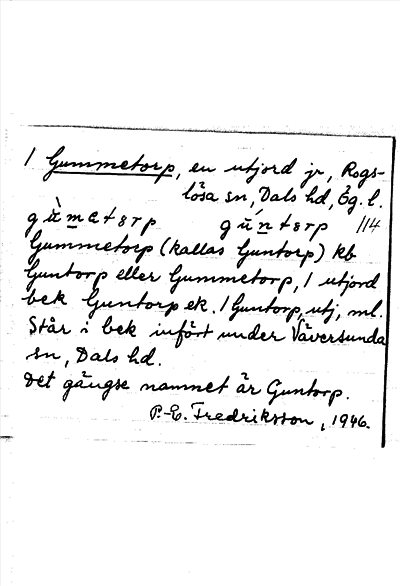 1 Gummetorp, en utjord jr, Rogs-
lösa sn, Dals hd, Ög. l.
gù̀matɜrp gún̲tɜrp 114
Gummetorp (kallas Guntorp) kb
Guntorp eller Gummetorp, 1 utjord
bek Guntorp ek. 1 Guntorp, utj, ml.
Står i bek infört under Väversunda
sn, Dals hd.
Det gängse namnet är Guntorp.
P.-E. Fredriksson, 1946.